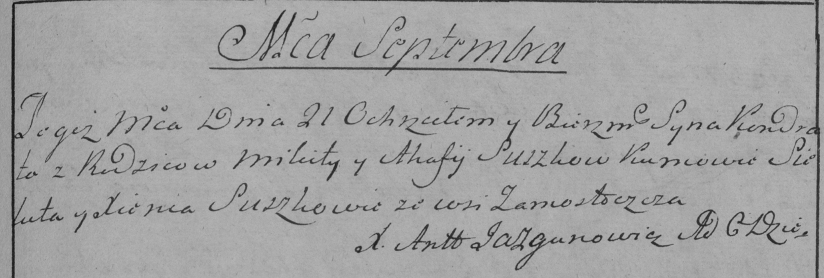 Mča Septembra
Tegiż Mča Dnia 21 Ochrzciłem y Bierzm. Syna Kondra
ta z Rodzicow Mikity y Ahafij Suszkow Kumowie Sie
luta y Xienia Suszkowie ze wsi Zamostocza
X. Antt Jazgunowicz